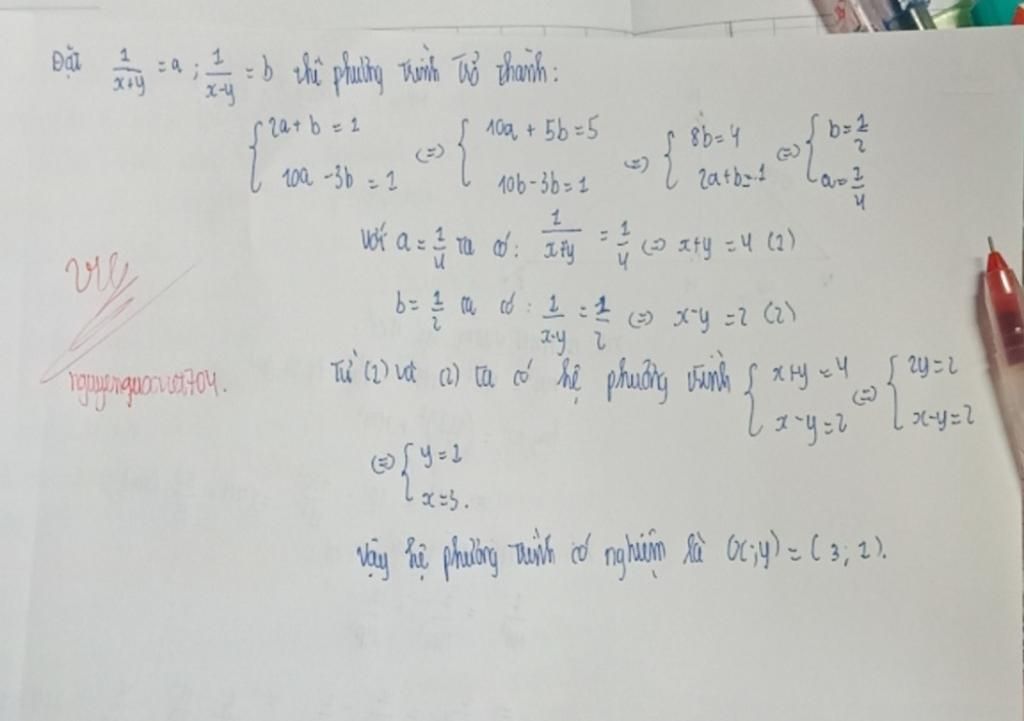 Đặt 1/(x+y) = a ; 1/(x-y) = b thì phương trình trở thành:
{ 2a + b = 1 ; 10a - 3b = 1 (=) { 10a + 5b = 5 ; 10b - 3b = 1 (=) { 8b = 4 ; 2a + b = 1 (=) { b = 1/2 ; a = 1/4
với a = 1/4 ta có: 1/(x+y) = 1/4 (=) x+y = 4 (1)
b = 1/2 ta có: 1/(x-y) = 1/2 (=) x-y = 2 (2)
Từ (1) và (2) ta có hệ phương trình { x+y = 4 ; x-y = 2 (=) { 2y = 2 ; x-y = 2
(=) { y = 1 ; x = 3.
Vậy hệ phương trình có nghiệm là (x;y) = (3; 1).